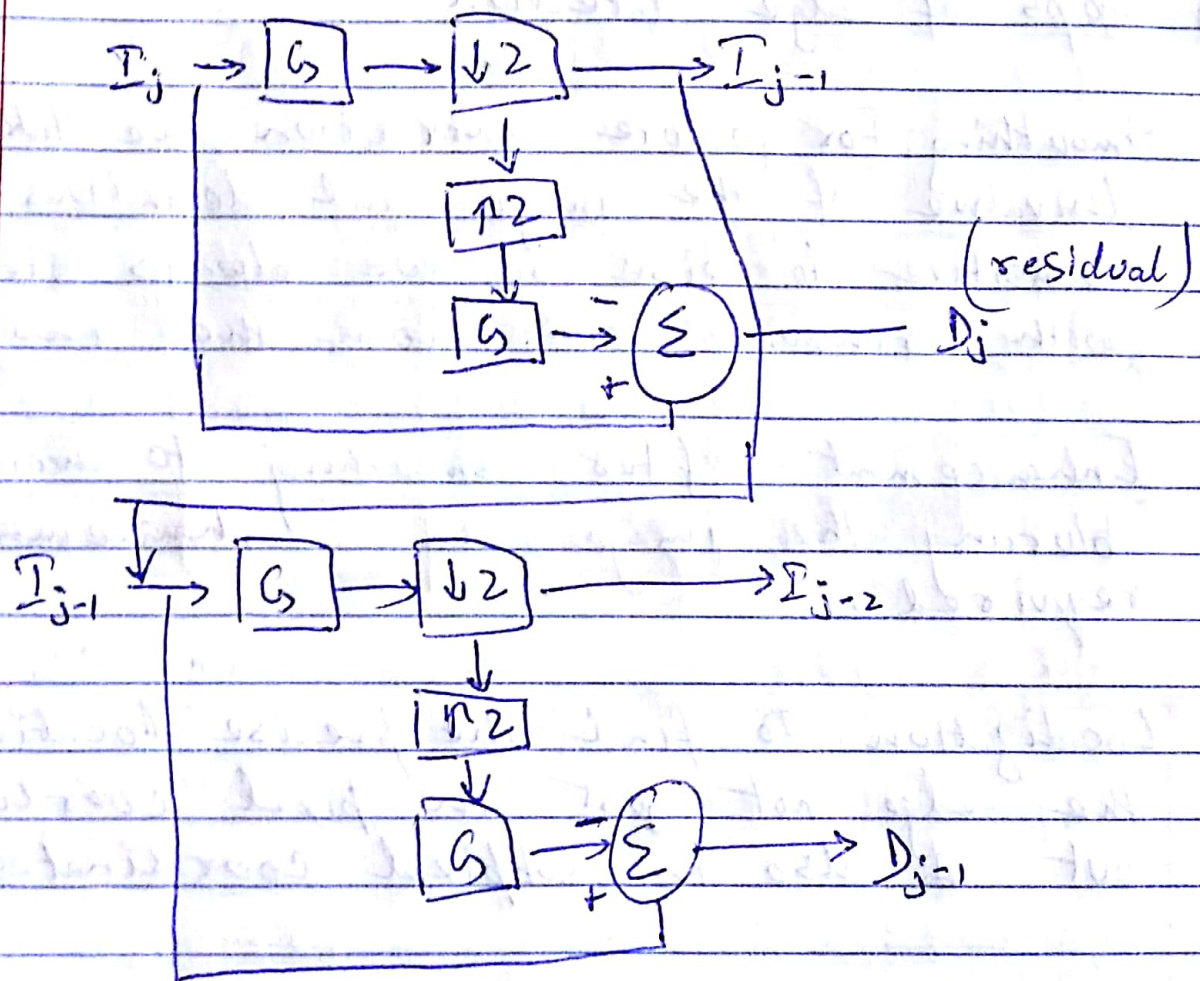 I_j → G → ↓2 → I_{j-1}
↑2
(residual)
G - Σ D_j
+
I_{j-1} → G → ↓2 → I_{j-2}
↑2
G - Σ → D_{j-1}
+